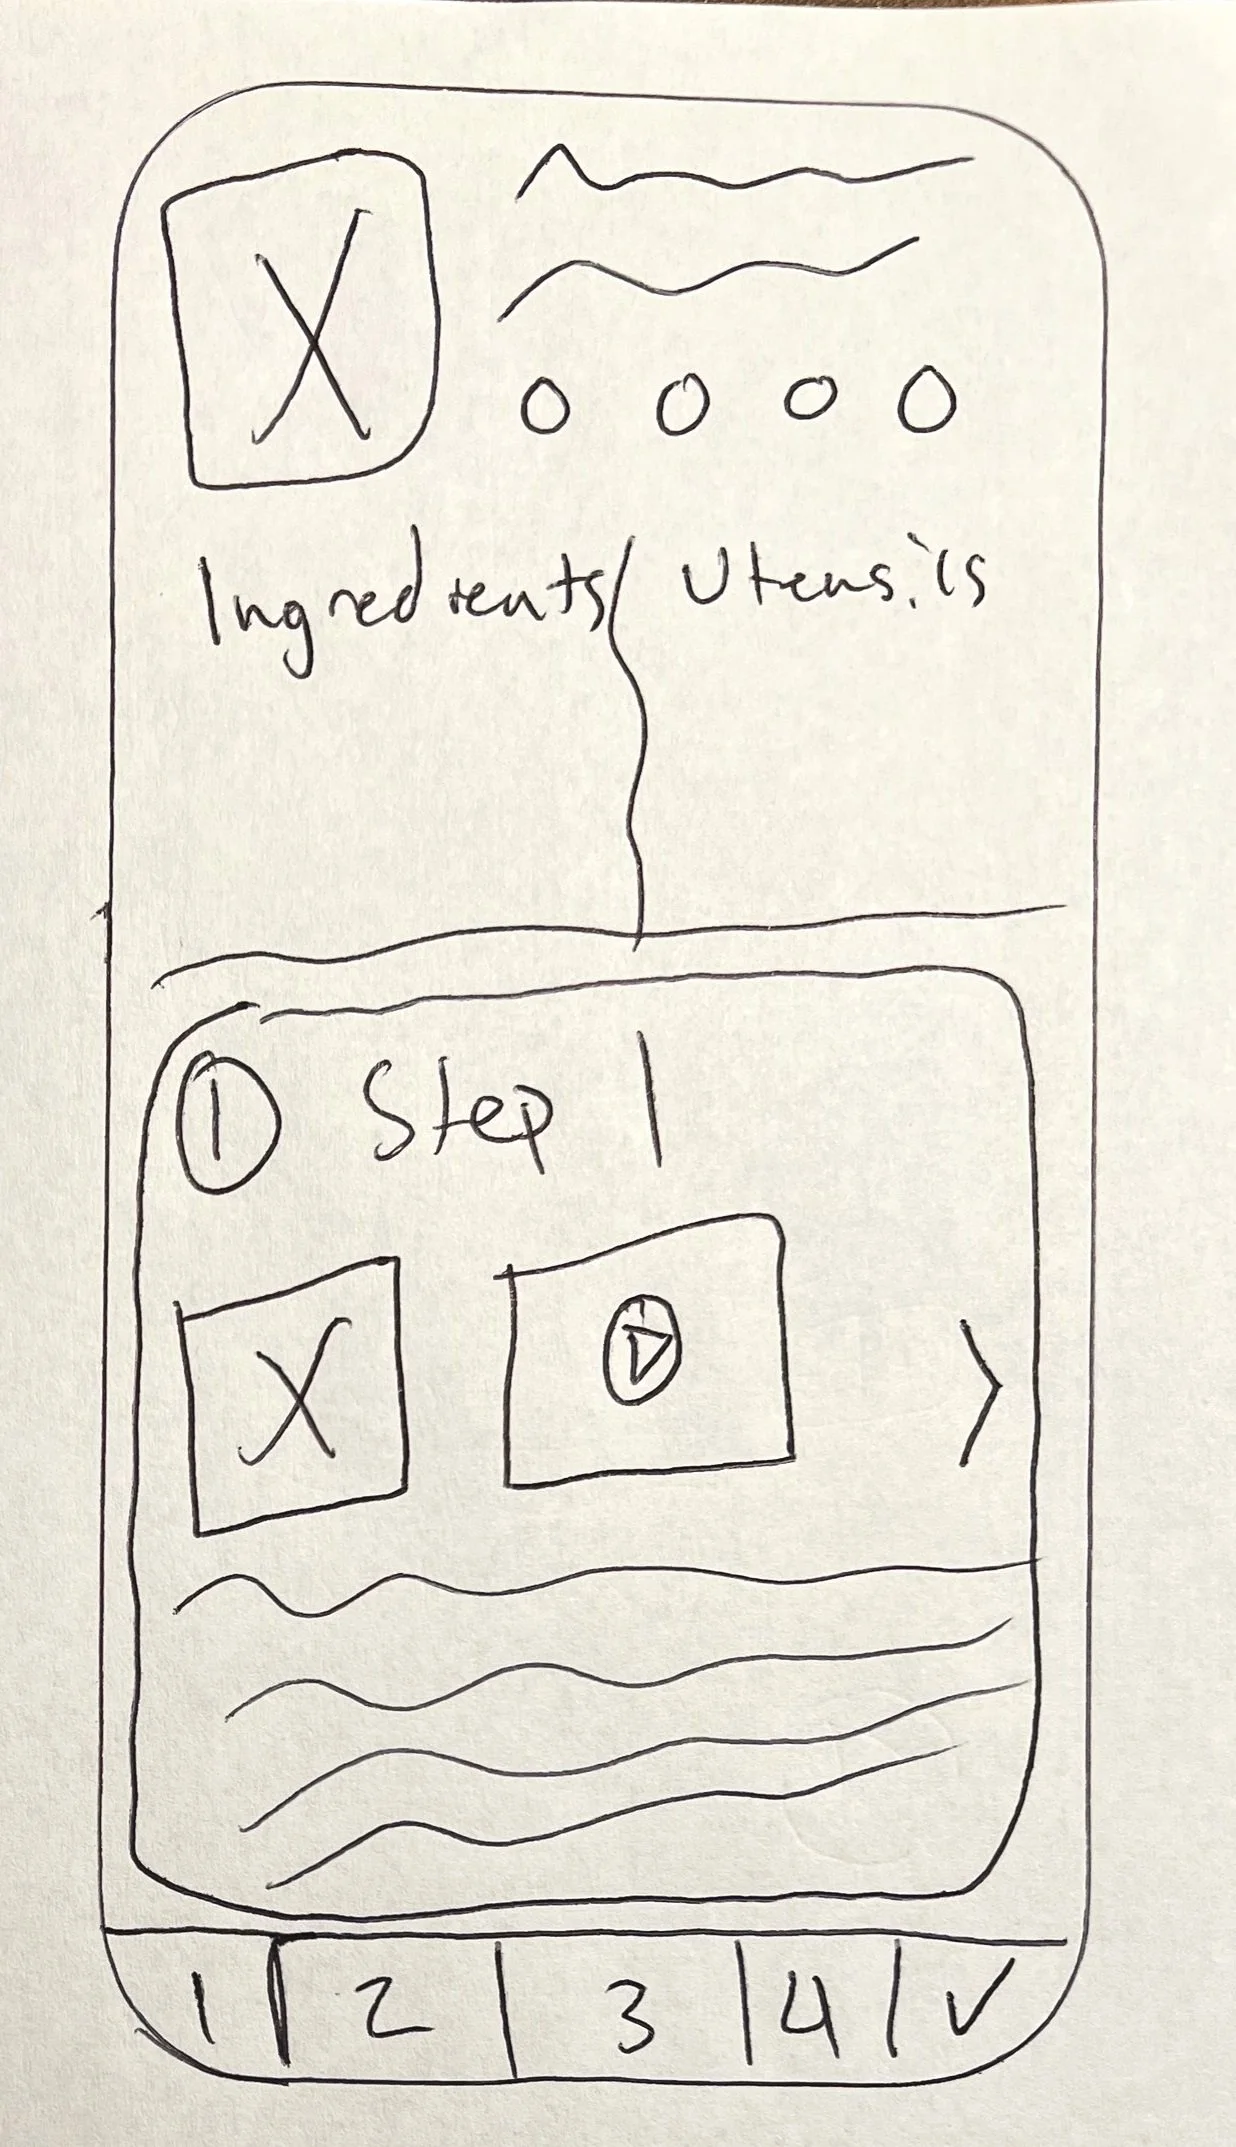 Ingredients/ Utensils
① Step 1
1 2 3 4 ✓